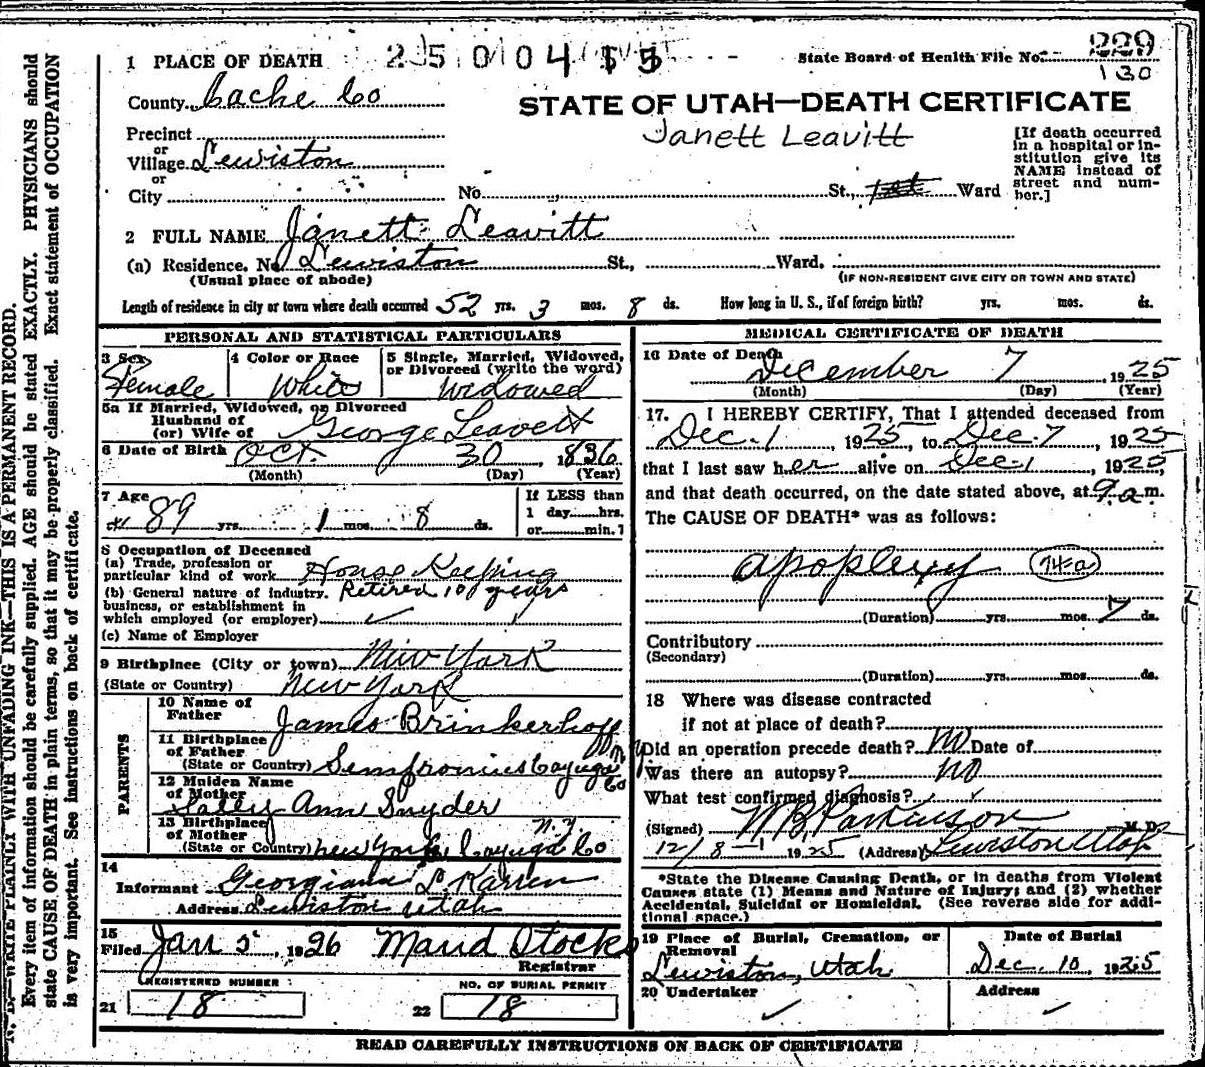 2 5 0 0 4 1 5
State Board of Health File No. 229
130
1 PLACE OF DEATH
County Cache Co
STATE OF UTAH—DEATH CERTIFICATE
Janett Leavitt
Precinct
or
Village Lewiston
or
City No. St., 1st Ward
[If death occurred
in a hospital or in-
stitution give its
NAME instead of
street and num-
ber.]
2 FULL NAME Janett Leavitt
(a) Residence. No Lewiston St., Ward.
(Usual place of abode)
(IF NON-RESIDENT GIVE CITY OR TOWN AND STATE)
Length of residence in city or town where death occurred 52 yrs. 3 mos. 8 ds. How long in U. S., if of foreign birth? yrs. mos. ds.
PERSONAL AND STATISTICAL PARTICULARS
3 Sex
Female
4 Color or Race
White
5 Single, Married, Widowed,
or Divorced (write the word)
Widowed
5a If Married, Widowed, or Divorced
Husband of
(or) Wife of George Leavett
6 Date of Birth Oct. 30 1836
(Month) (Day) (Year)
7 Age
89 yrs. 1 mos. 8 ds.
If LESS than
1 day hrs.
or min.?
8 Occupation of Deceased
(a) Trade, profession or
particular kind of work House Keeping
(b) General nature of Industry. Retired 10 years
business, or establishment in
which employed (or employer)
(c) Name of Employer
9 Birthplace (City or town) New York
(State or Country) New York
PARENTS
10 Name of
Father James Brinkerhoff
11 Birthplace
of Father
(State or Country) Semfronius Cayuga Co N.Y
12 Maiden Name
of Mother
Salley Ann Snyder
13 Birthplace
of Mother N.Y
(State or Country) New York, Cayuga Co
14
Informant Georgiana L. Karren
Address Lewiston Utah
15
Filed Jan 5, 1926 Maud Stocks
Registrar
REGISTERED NUMBER
21 18
NO. OF BURIAL PERMIT
22 18
MEDICAL CERTIFICATE OF DEATH
16 Date of Death
December 7, 1925
(Month) (Day) (Year)
17. I HEREBY CERTIFY, That I attended deceased from
Dec. 1 1925, to Dec. 7, 1925
that I last saw her alive on Dec. 1, 1925,
and that death occurred, on the date stated above, at 9 a m.
The CAUSE OF DEATH* was as follows:
apoplexy 74-a
(Duration) yrs. mos. 7 ds.
Contributory
(Secondary)
(Duration) yrs. mos. ds.
18 Where was disease contracted
if not at place of death?
Did an operation precede death? No Date of
Was there an autopsy? No
What test confirmed diagnosis?
(Signed) W B Parkinson M. D.
12/8 1925 (Address) Lewiston Utah
*State the Disease Causing Death, or in deaths from Violent
Causes state (1) Means and Nature of Injury; and (2) whether
Accidental, Suicidal or Homicidal. (See reverse side for addi-
tional space.)
19 Place of Burial, Cremation, or
Removal
Lewiston, Utah
Date of Burial
Dec. 10 1925
20 Undertaker
Address
READ CAREFULLY INSTRUCTIONS ON BACK OF CERTIFICATE
N. B.—WRITE PLAINLY WITH UNFADING INK—THIS IS A PERMANENT RECORD.
Every item of information should be carefully supplied. AGE should be stated EXACTLY. PHYSICIANS should
state CAUSE OF DEATH in plain terms, so that it may be properly classified. Exact statement of OCCUPATION
is very important. See instructions on back of certificate.